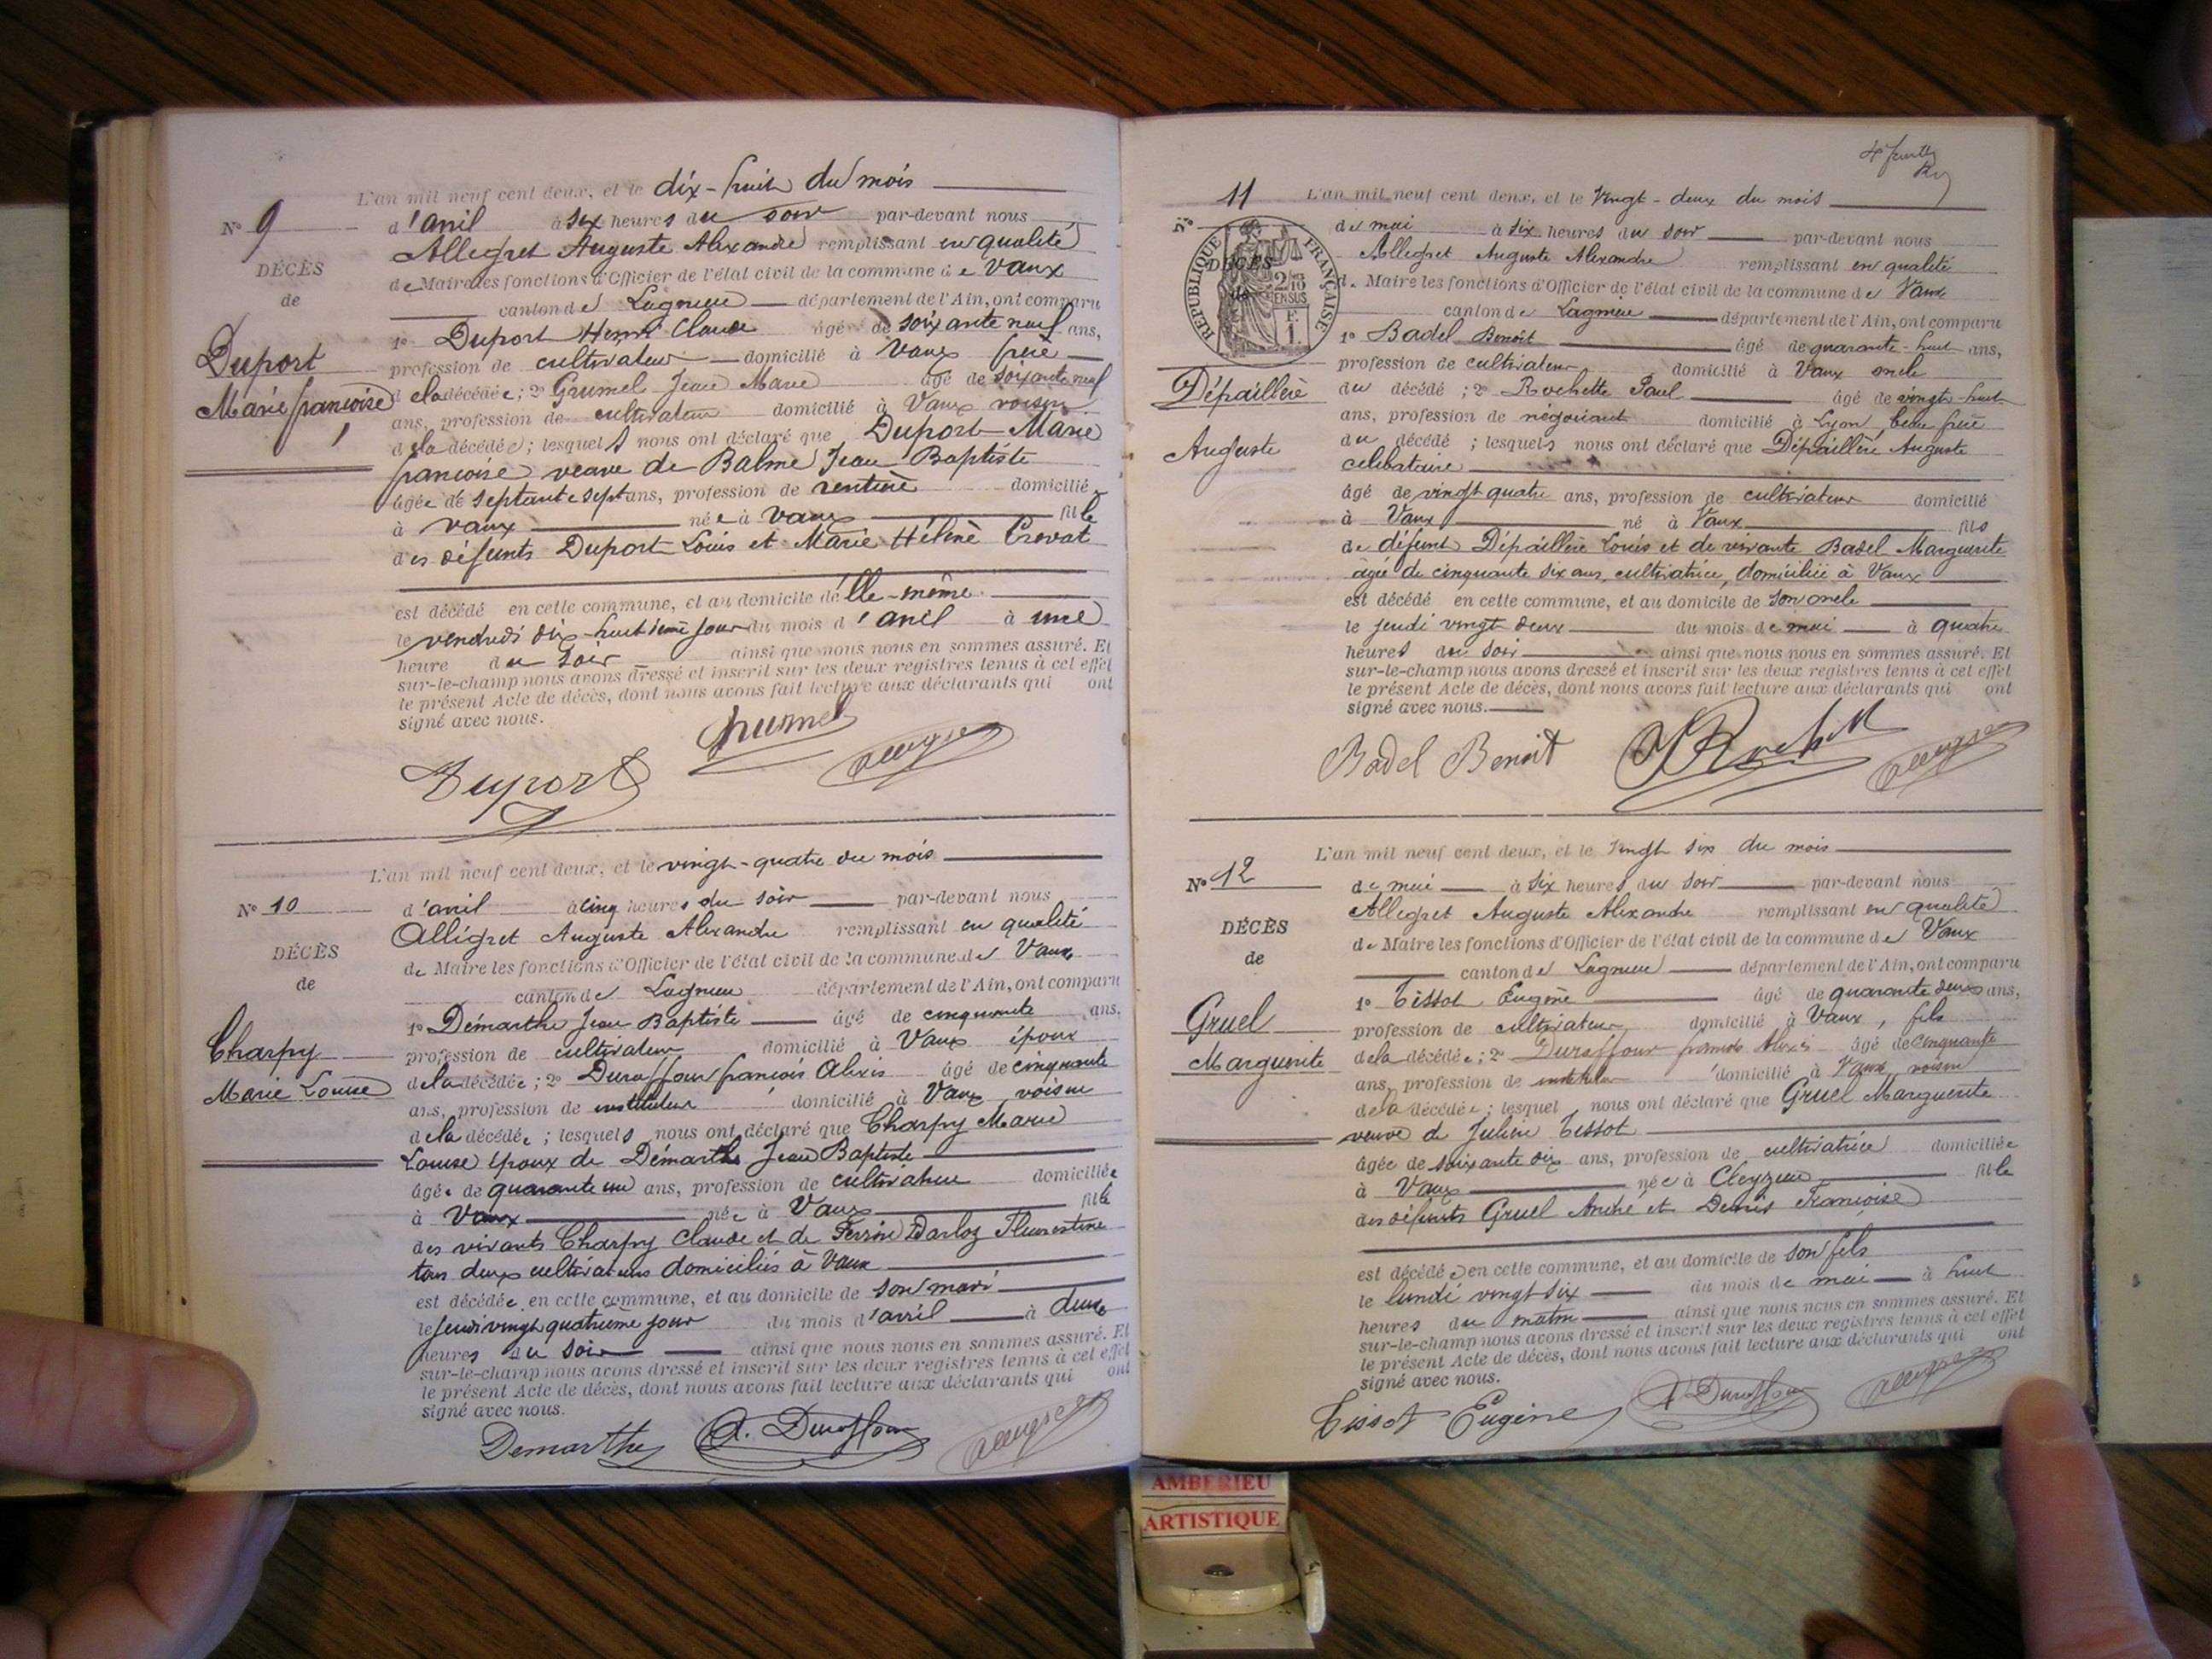 L'an mil neuf cent deux, et le dix-huit du mois
N° 9
d'avril à six heures du soir par-devant nous
Allegret Auguste Alexandre remplissant en qualité
DÉCÈS
de Maire les fonctions d'Officier de l'état civil de la commune de Vaux
de
canton de Lagnieu département de l'Ain, ont comparu
1° Duport Henri Claude âgé de soixante neuf ans,
Duport
profession de cultivateur domicilié à Vaux frère
Marie françoise
de la décédée; 2° Grumel Jean Marie âgé de soixante neuf
ans, profession de cultivateur domicilié à Vaux voisin
de la décédée; lesquels nous ont déclaré que Duport Marie
françoise veuve de Balme Jean Baptiste
âgée de septante sept ans, profession de rentière domiciliée
à Vaux née à Vaux fille
des défunts Duport Louis et Marie Hélène Crovat
est décédé en cette commune, et au domicile d'elle-même
le vendredi dix-huitième jour du mois d'avril à une
heure du soir ainsi que nous nous en sommes assuré. Et
sur-le-champ nous avons dressé et inscrit sur les deux registres tenus à cet effet
le présent Acte de décès, dont nous avons fait lecture aux déclarants qui ont
signé avec nous.
Grumel
Duport
L'an mil neuf cent deux, et le vingt-quatre du mois
N° 10
d'avril à cinq heures du soir par-devant nous
Allégret Auguste Alexandre remplissant en qualité
DÉCÈS
de Maire les fonctions d'Officier de l'état civil de la commune de Vaux
de
canton de Lagnieu département de l'Ain, ont comparu
1° Démarthe Jean Baptiste âgé de cinquante ans,
Charpy
profession de cultivateur domicilié à Vaux époux
Marie Louise
de la décédée; 2° Duraffour françois Alexis âgé de cinquante
ans, profession de instituteur domicilié à Vaux voisin
de la décédée; lesquels nous ont déclaré que Charpy Marie
Louise époux de Démarthe Jean Baptiste
âgée de quarante un ans, profession de cultivateur domiciliée
à Vaux née à Vaux fille
des vivants Charpy Claude et de Perrin Darloz Florentine
tous deux cultivateurs domiciliés à Vaux
est décédée en cette commune, et au domicile de son mari
le jeudi vingt quatrième jour du mois d'avril à deux
heures du soir ainsi que nous nous en sommes assuré. Et
sur-le-champ nous avons dressé et inscrit sur les deux registres tenus à cet effet
le présent Acte de décès, dont nous avons fait lecture aux déclarants qui ont
signé avec nous.
Demarthe A. Duraffour
N° 11
L'an mil neuf cent deux, et le Vingt-deux du mois
de mai à six heures du soir par-devant nous
REPUBLIQUE FRANÇAISE
2/10 EN SUS
F. 1.
DÉCÈS
de
Allegret Auguste Alexandre remplissant en qualité
de Maire les fonctions d'Officier de l'état civil de la commune de Vaux
canton de Lagnieu département de l'Ain, ont comparu
1° Badel Benoît âgé de quarante-huit ans,
profession de cultivateur domicilié à Vaux oncle
Dépaillère
du décédé; 2° Rochette Paul âgé de vingt-huit
ans, profession de négociant domicilié à Lyon, beau frère
Auguste
du décédé; lesquels nous ont déclaré que Dépaillère Auguste
celibataire
âgé de vingt quatre ans, profession de cultivateur domicilié
à Vaux né à Vaux fils
de défunt Dépaillère Louis et de vivante Badel Marguerite
âgée de cinquante six ans, cultivatrice, domiciliée à Vaux
est décédé en cette commune, et au domicile de son oncle
le jeudi vingt deux du mois de mai à quatre
heures du soir ainsi que nous nous en sommes assuré. Et
sur-le-champ nous avons dressé et inscrit sur les deux registres tenus à cet effet
le présent Acte de décès, dont nous avons fait lecture aux déclarants qui ont
signé avec nous.
Badel Benoit
L'an mil neuf cent deux, et le Vingt six du mois
N° 12
de mai à six heures du soir par-devant nous
Allegret Auguste Alexandre remplissant en qualité
DÉCÈS
de Maire les fonctions d'Officier de l'état civil de la commune de Vaux
de
canton de Lagnieu département de l'Ain, ont comparu
1° Tissot Eugène âgé de quarante deux ans,
Gruel
profession de cultivateur domicilié à Vaux, fils
Marguerite
de la décédée; 2° Duraffour françois Alexis âgé de cinquante
ans, profession de instituteur domicilié à Vaux voisin
de la décédée; lesquel nous ont déclaré que Gruel Marguerite
veuve de Julien Tissot
âgée de soixante dix ans, profession de cultivatrice domiciliée
à Vaux née à Cleyzieu fille
des défunts Gruel André et Denis Françoise
est décédée en cette commune, et au domicile de son fils
le lundi vingt six du mois de mai à huit
heures du matin ainsi que nous nous en sommes assuré. Et
sur-le-champ nous avons dressé et inscrit sur les deux registres tenus à cet effet
le présent Acte de décès, dont nous avons fait lecture aux déclarants qui ont
signé avec nous.
Tissot Eugène A. Duraffour
AMBERIEU
ARTISTIQUE